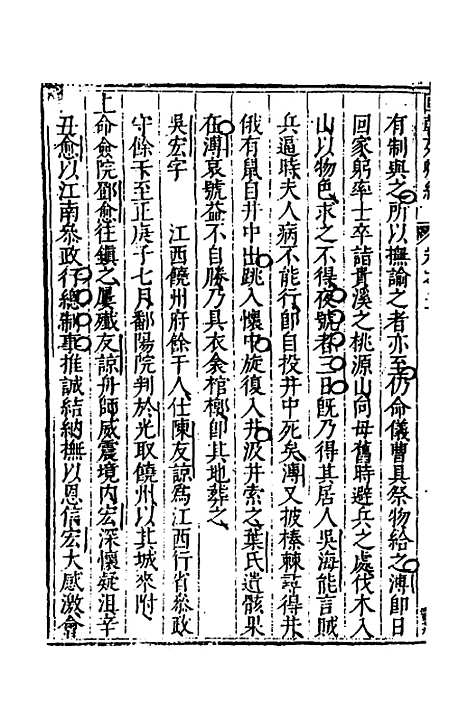 有制與之所以撫諭之者亦至仍命儀曹具祭物給之溥即日
回家躬率士卒詣貴溪之桃源山向母舊時避兵之處伐木入
山以物色求之不得夜號者三日旣乃得其居人吳海能言賊
兵逼時夫人病不能行即自投井中死矣溥又披榛棘尋得井
俄有鼠自井中出跳入懷中旋復入井汲井索之葉氏遺骸果
在溥哀號益不自勝乃具衣衾棺槨即其地葬之
吳宏字 江西饒州府餘干人仕陳友諒爲江西行省叅政
守餘干至正庚子七月鄱陽院判於光取饒州以其城來附
上命僉院鄧愈往鎮之屢殲友諒舟師威震境内宏深懷疑沮辛
丑愈以江南叅政行總制事推誠結納撫以恩信宏大感激會